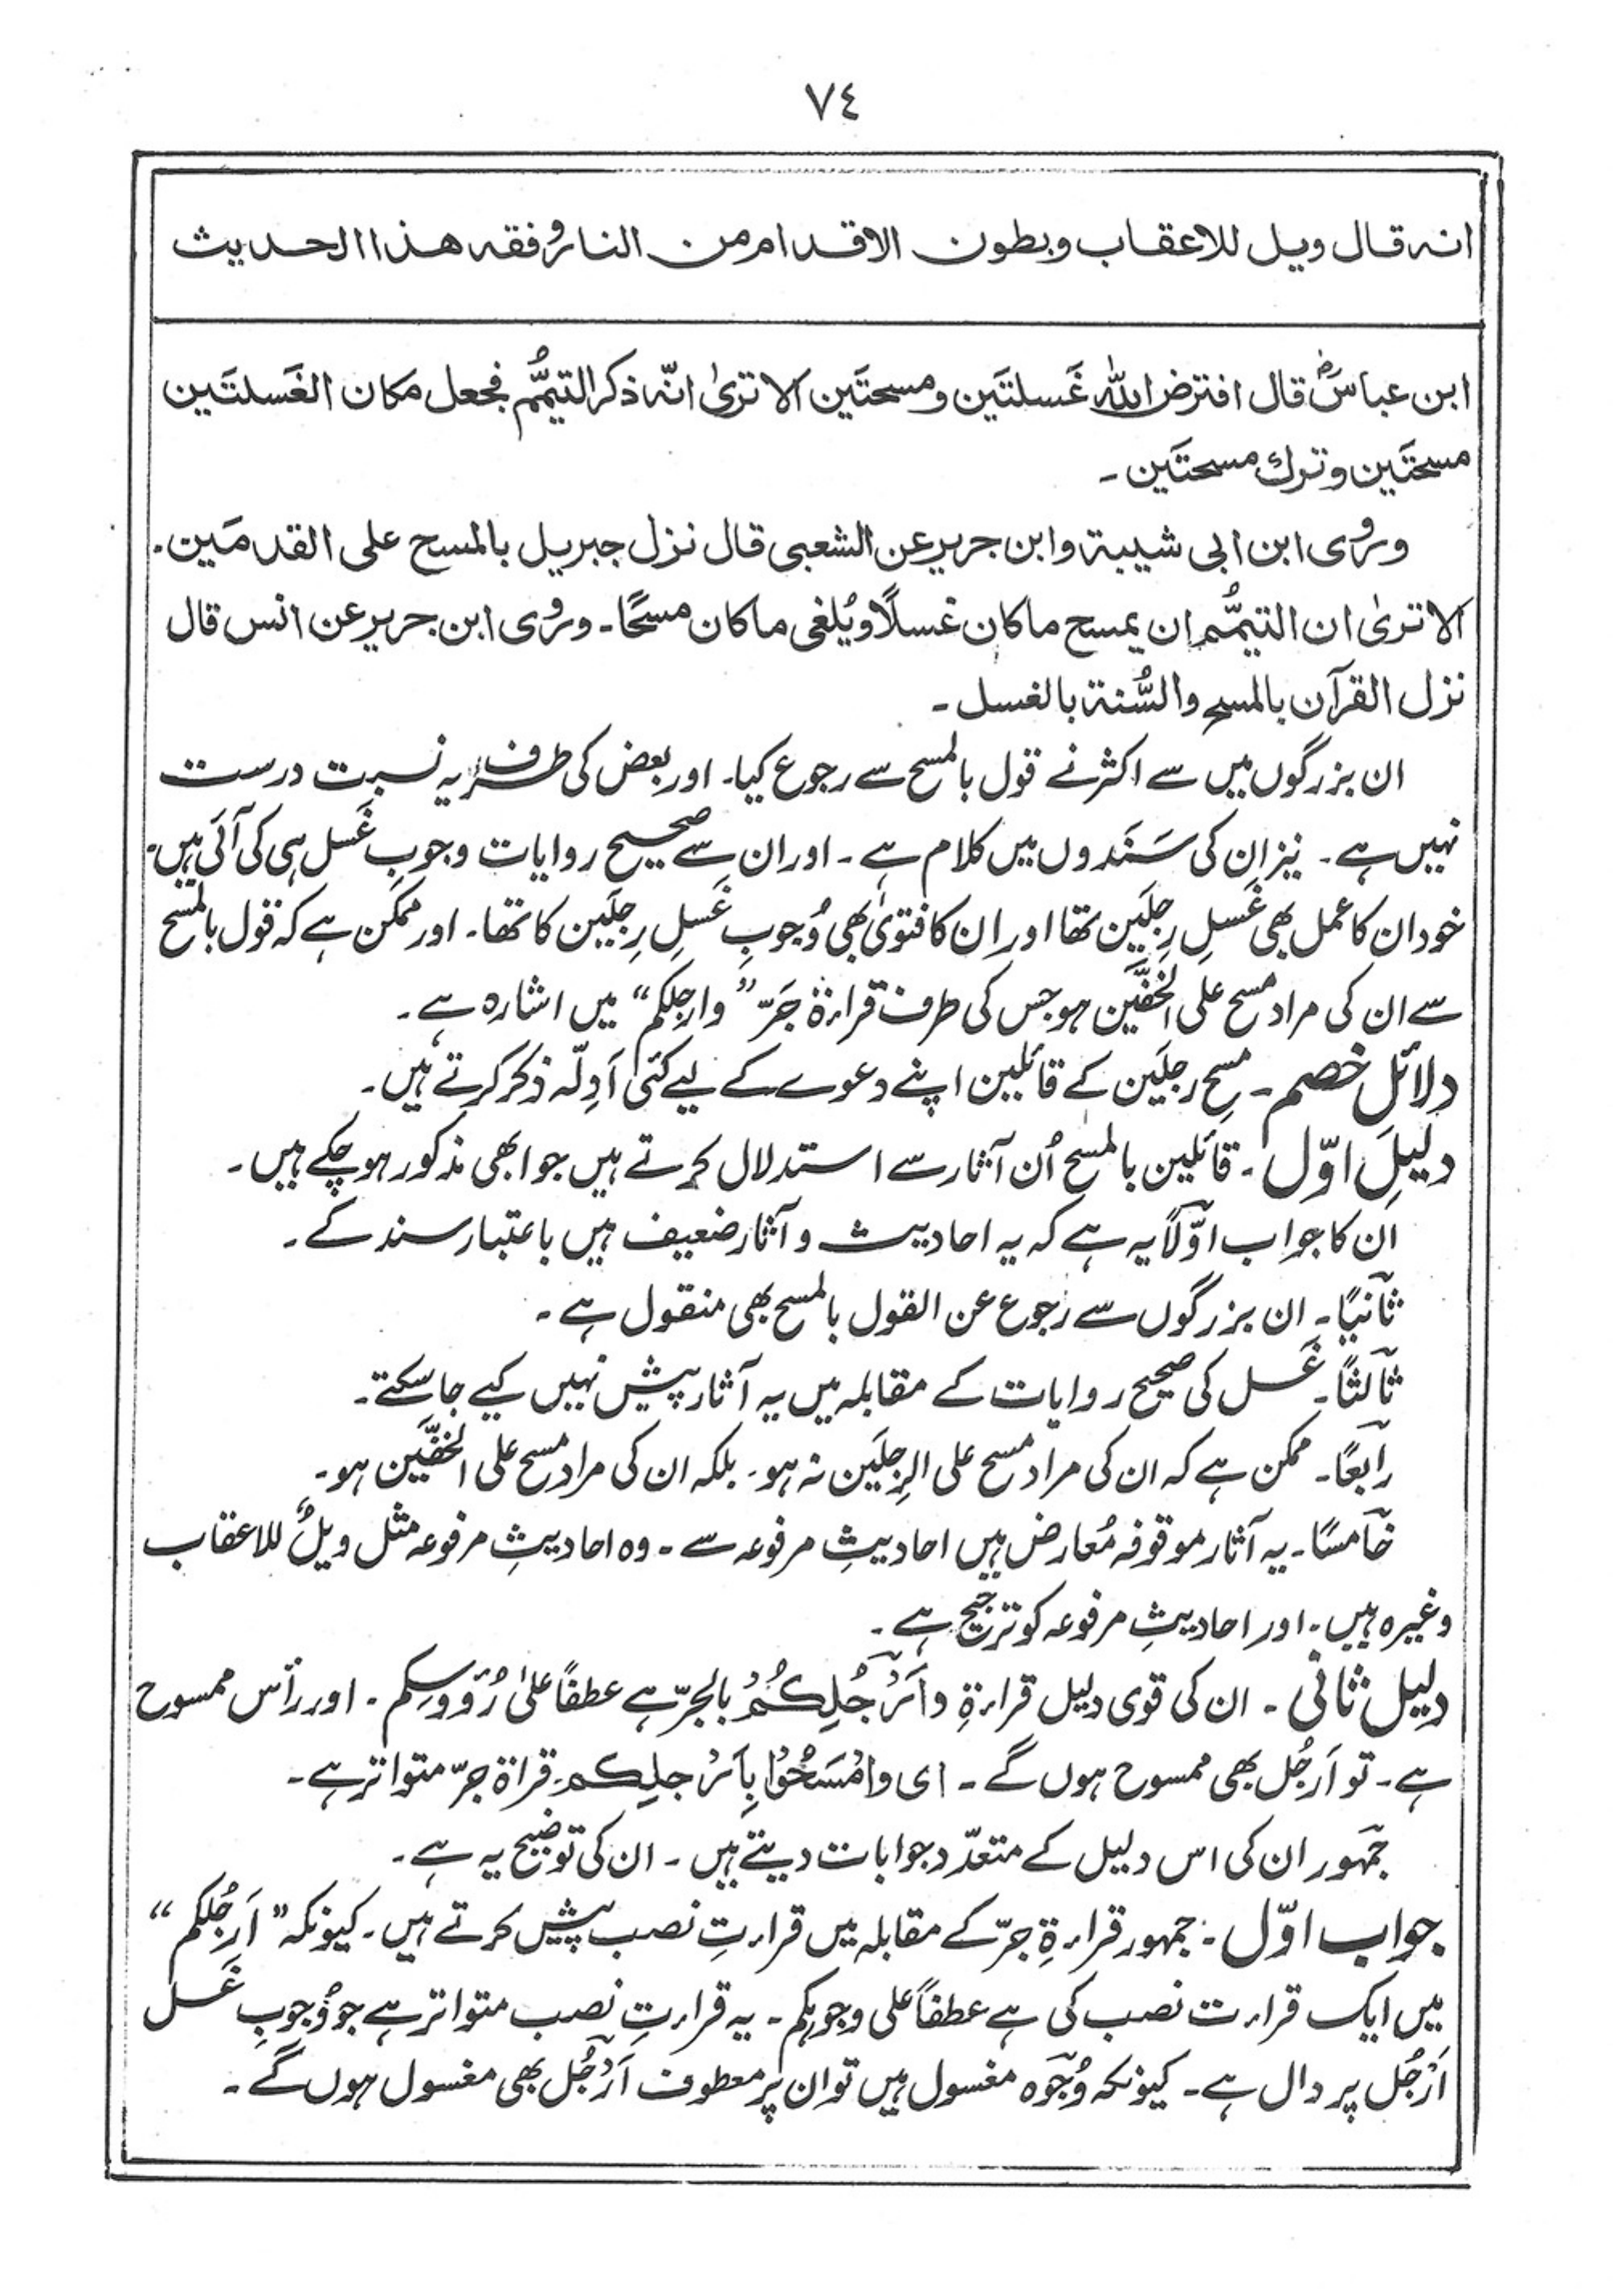 ٧٤
انہ قال ویل للاعقاب وبطون الاقدام من النار وفقہ ھذا الحدیث
ابن عباسؓ قال افترض اللہ غَسلتَین ومسحتَین الا تریٰ انّہ ذکر التیمُّم فجعل مکان الغَسلتَین
مسحتَین وترک مسحتَین ۔
وروی ابن ابی شیبۃ وابن جریر عن الشعبی قال نزل جبریل بالمسح علی القدمَین ۔
الا تریٰ ان التیمُّم ان یمسح ما کان غسلًا ویُلغی ما کان مسحًا ۔ وروی ابن جریر عن انس قال
نزل القرآن بالمسح والسُّنۃ بالغسل ۔
ان بزرگوں میں سے اکثر نے قول بالمسح سے رجوع کیا ۔ اور بعض کی طرف یہ نسبت درست
نہیں ہے ۔ نیز ان کی سَنَدوں میں کلام ہے ۔ اور ان سے صحیح روایات وجوبِ غَسل ہی کی آئی ہیں ۔
خود ان کا عمل بھی غَسلِ رِجلَین تھا اور ان کا فتویٰ بھی وُجوبِ غَسلِ رِجلَین کا تھا ۔ اور ممکن ہے کہ قول بالمسح
سے ان کی مراد مسح علی الخُفَّین ہو جس کی طرف قراءۃ جَرّ ”وارجلِکم“ میں اشارہ ہے ۔
دلائلِ خصم ۔ مسحِ رجلَین کے قائلین اپنے دعوے کے لیے کئی اَدِلّہ ذکر کرتے ہیں ۔
دلیلِ اوّل ۔ قائلین بالمسح اُن آثار سے استدلال کرتے ہیں جو ابھی مذکور ہو چکے ہیں ۔
ان کا جواب اوّلًا یہ ہے کہ یہ احادیث و آثار ضعیف ہیں باعتبار سند کے ۔
ثانیًا ۔ ان بزرگوں سے رجوع عن القول بالمسح بھی منقول ہے ۔
ثالثًا ۔ غَسل کی صحیح روایات کے مقابلہ میں یہ آثار پیش نہیں کیے جا سکتے ۔
رابعًا ۔ ممکن ہے کہ ان کی مراد مسح علی الرِجلَین نہ ہو ۔ بلکہ ان کی مراد مسح علی الخُفَّین ہو ۔
خامسًا ۔ یہ آثار موقوفہ مُعارض ہیں احادیثِ مرفوعہ سے ۔ وہ احادیثِ مرفوعہ مثل ویلٌ للاعقاب
وغیرہ ہیں ۔ اور احادیثِ مرفوعہ کو ترجیح ہے ۔
دلیل ثانی ۔ ان کی قوی دلیل قراءۃِ وَاَرْجُلِکُمْ بالجرّ ہے عطفًا علیٰ رُؤوسِکم ۔ اور رأس ممسوح
ہے ۔ تو اَرجُل بھی ممسوح ہوں گے ۔ ای وامْسَحُوْا بِاَرْجلِکم ۔ قراۃ جرّ متواتر ہے ۔
جمہور ان کی اس دلیل کے متعدّد جوابات دیتے ہیں ۔ ان کی توضیح یہ ہے ۔
جواب اوّل ۔ جمہور قراءۃِ جرّ کے مقابلہ میں قراءتِ نصب پیش کرتے ہیں ۔ کیونکہ ”اَرجُلکم“
میں ایک قراءت نصب کی ہے عطفاً علی وجوہکم ۔ یہ قراءتِ نصب متواتر ہے جو وُجوبِ غَسل
اَرْجُل پر دال ہے ۔ کیونکہ وُجُوہ مغسول ہیں تو ان پر معطوف اَرْجُل بھی مغسول ہوں گے ۔